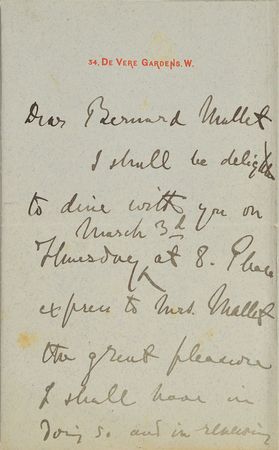 34, DE VERE GARDENS. W.
Dear Bernard Mallet
I shall be delight
to dine with you on
March 3d
Thursday at 8. Please
express to Mrs. Mallet
the great pleasure
I shall have in
doing so and in renewing